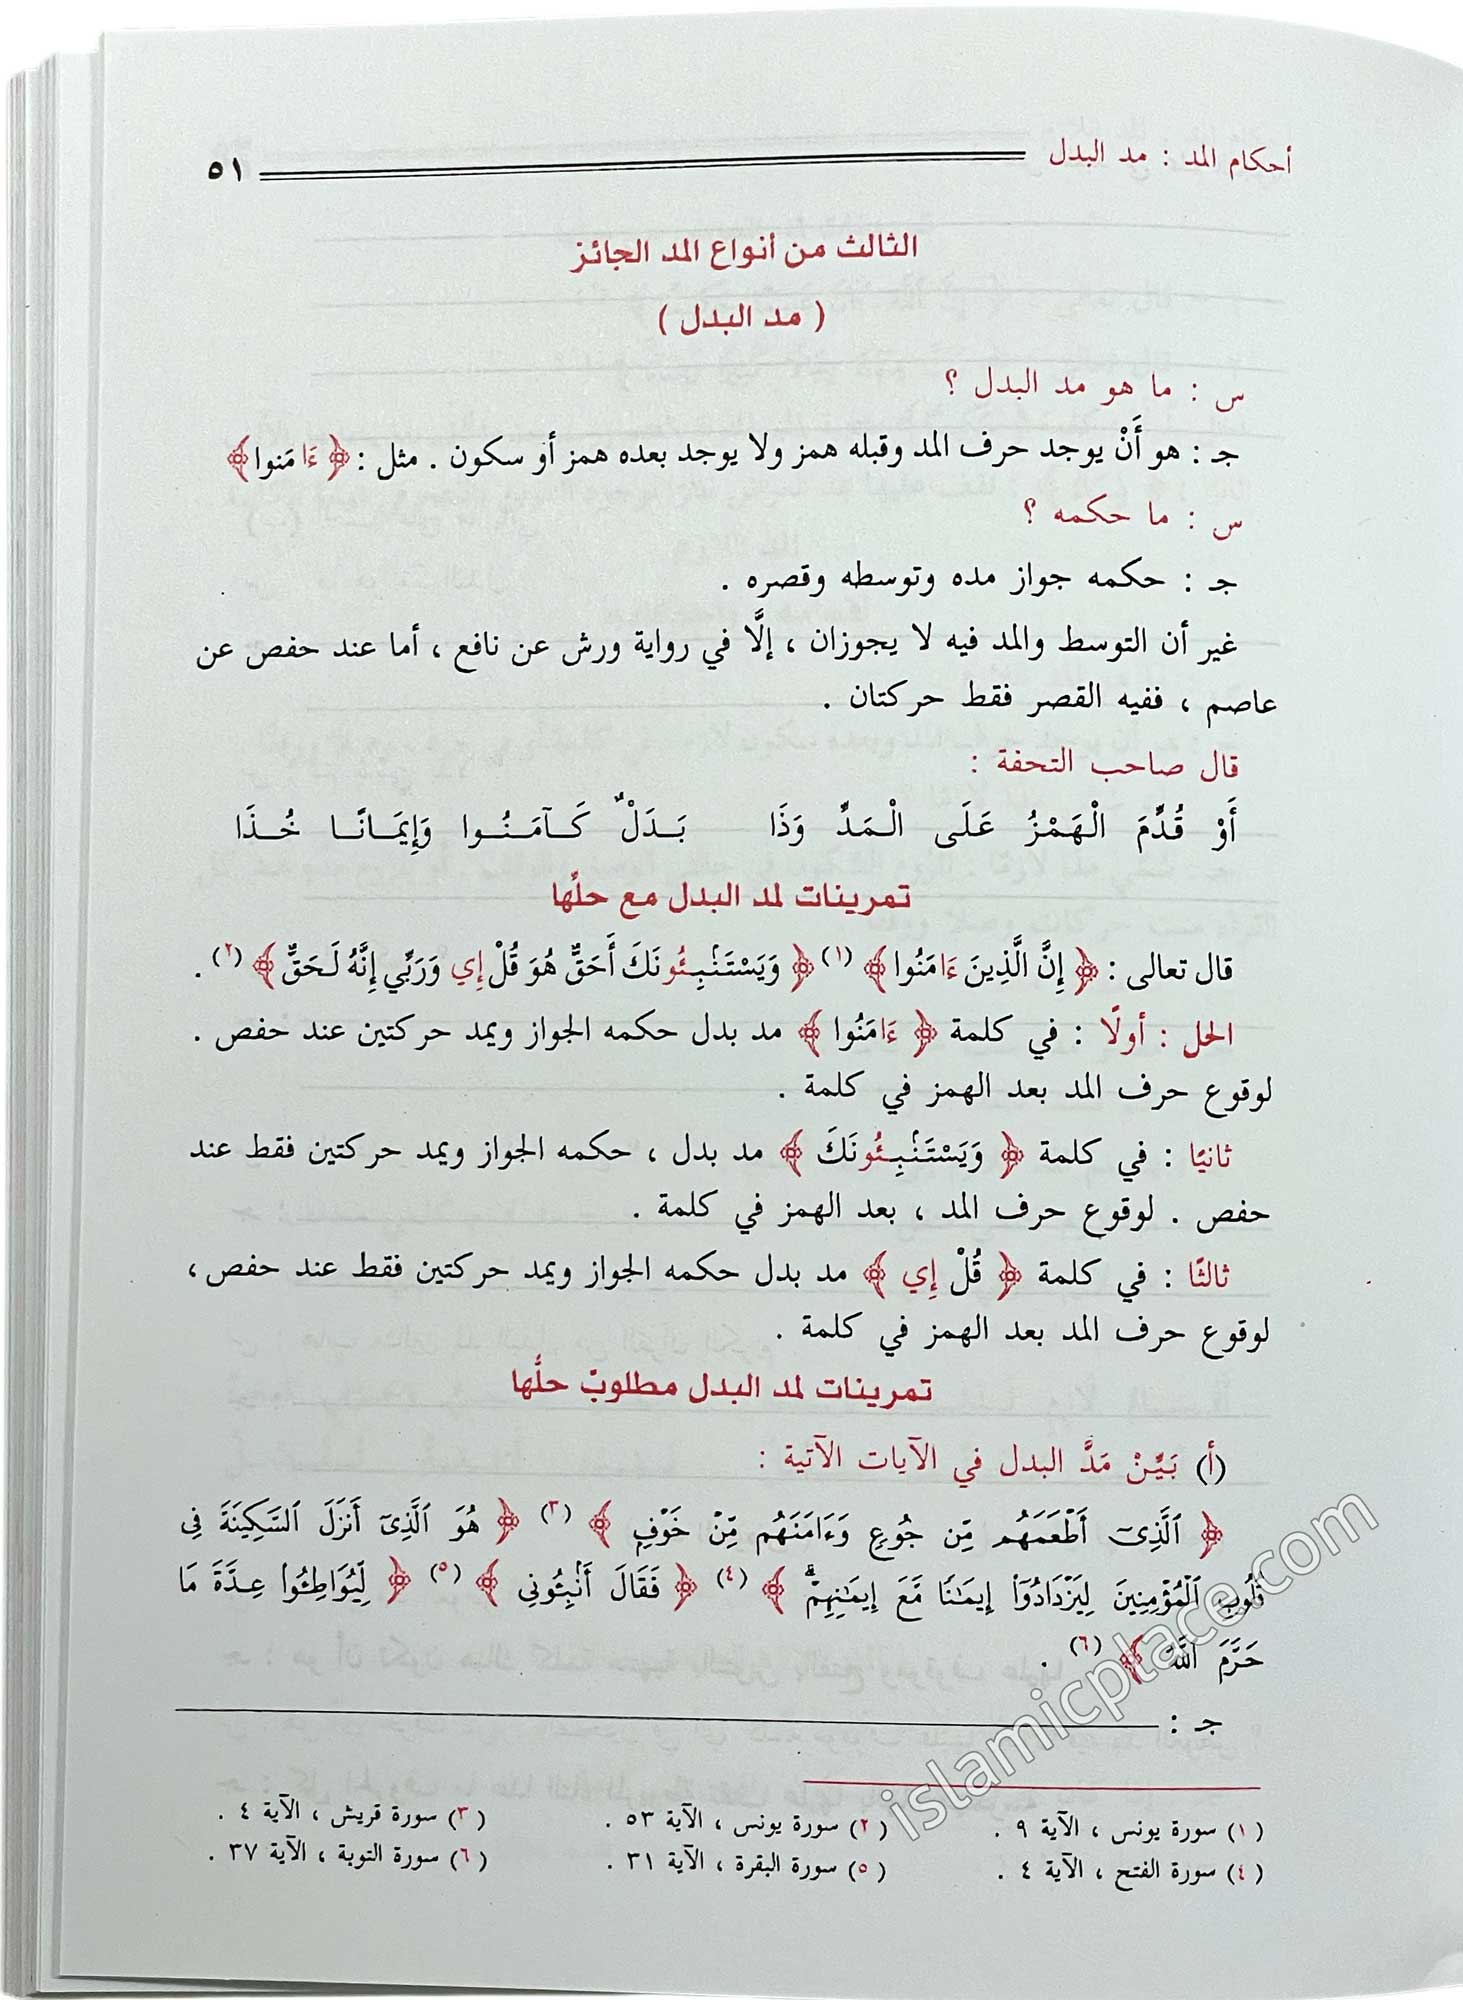 أحكام المد : مد البدل ٥١
الثالث من أنواع المد الجائز
( مد البدل )
س : ما هو مد البدل ؟
جـ : هو أَنْ يوجد حرف المد وقبله همز ولا يوجد بعده همز أو سكون . مثل : ﴿ ءَا مَنوا ﴾
س : ما حكمه ؟
جـ : حكمه جواز مده وتوسطه وقصره .
غير أن التوسط والمد فيه لا يجوزان ، إلَّا في رواية ورش عن نافع ، أما عند حفص عن
عاصم ، ففيه القصر فقط حركتان .
قال صاحب التحفة :
أَوْ قُدِّمَ الْهَمْزُ عَلَى الْـمَدِّ وَذَا بَـدَلْ كَـآمَـنُـوا وَإِيمَـانًـا خُـذَا
تمرينات لمد البدل مع حلِّها
قال تعالى : ﴿ إِنَّ الَّذِينَ ءَامَنُوا ﴾ (١) ﴿ وَيَسْتَنۢبِـُٔونَكَ أَحَقٌّ هُوَ قُلْ إِي وَرَبِّي إِنَّهُ لَحَقٌّ ﴾ (٢) .
الحل : أولًا : في كلمة ﴿ ءَامَنُوا ﴾ مد بدل حكمه الجواز ويمد حركتين عند حفص .
لوقوع حرف المد بعد الهمز في كلمة .
ثانيًا : في كلمة ﴿ وَيَسْتَنۢبِـُٔونَكَ ﴾ مد بدل ، حكمه الجواز ويمد حركتين فقط عند
حفص . لوقوع حرف المد ، بعد الهمز في كلمة .
ثالثًا : في كلمة ﴿ قُلْ إِي ﴾ مد بدل حكمه الجواز ويمد حركتين فقط عند حفص ،
لوقوع حرف المد بعد الهمز في كلمة .
تمرينات لمد البدل مطلوبٌ حلُّها
(أ) بَيِّنْ مَدَّ البدل في الآيات الآتية :
﴿ ٱلَّذِىٓ أَطْعَمَهُم مِّن جُوعٍ وَءَامَنَهُم مِّنْ خَوْفٍ ﴾ (٣) ﴿ هُوَ ٱلَّذِىٓ أَنزَلَ ٱلسَّكِينَةَ فِى
قُلُوبِ ٱلْمُؤْمِنِينَ لِيَزْدَادُوٓا۟ إِيمَٰنًا مَّعَ إِيمَٰنِهِمْ ۗ ﴾ (٤) ﴿ فَقَالَ أَنۢبِـُٔونِي ﴾ (٥) ﴿ لِّيُوَاطِـُٔوا۟ عِدَّةَ مَا
حَرَّمَ ٱللَّهُ ﴾ (٦) .
جـ :
(١) سورة يونس ، الآية ٩ . (٢) سورة يونس ، الآية ٥٣ . (٣) سورة قريش ، الآية ٤ .
(٤) سورة الفتح ، الآية ٤ . (٥) سورة البقرة ، الآية ٣١ . (٦) سورة التوبة ، الآية ٣٧ .
islamicplace.com